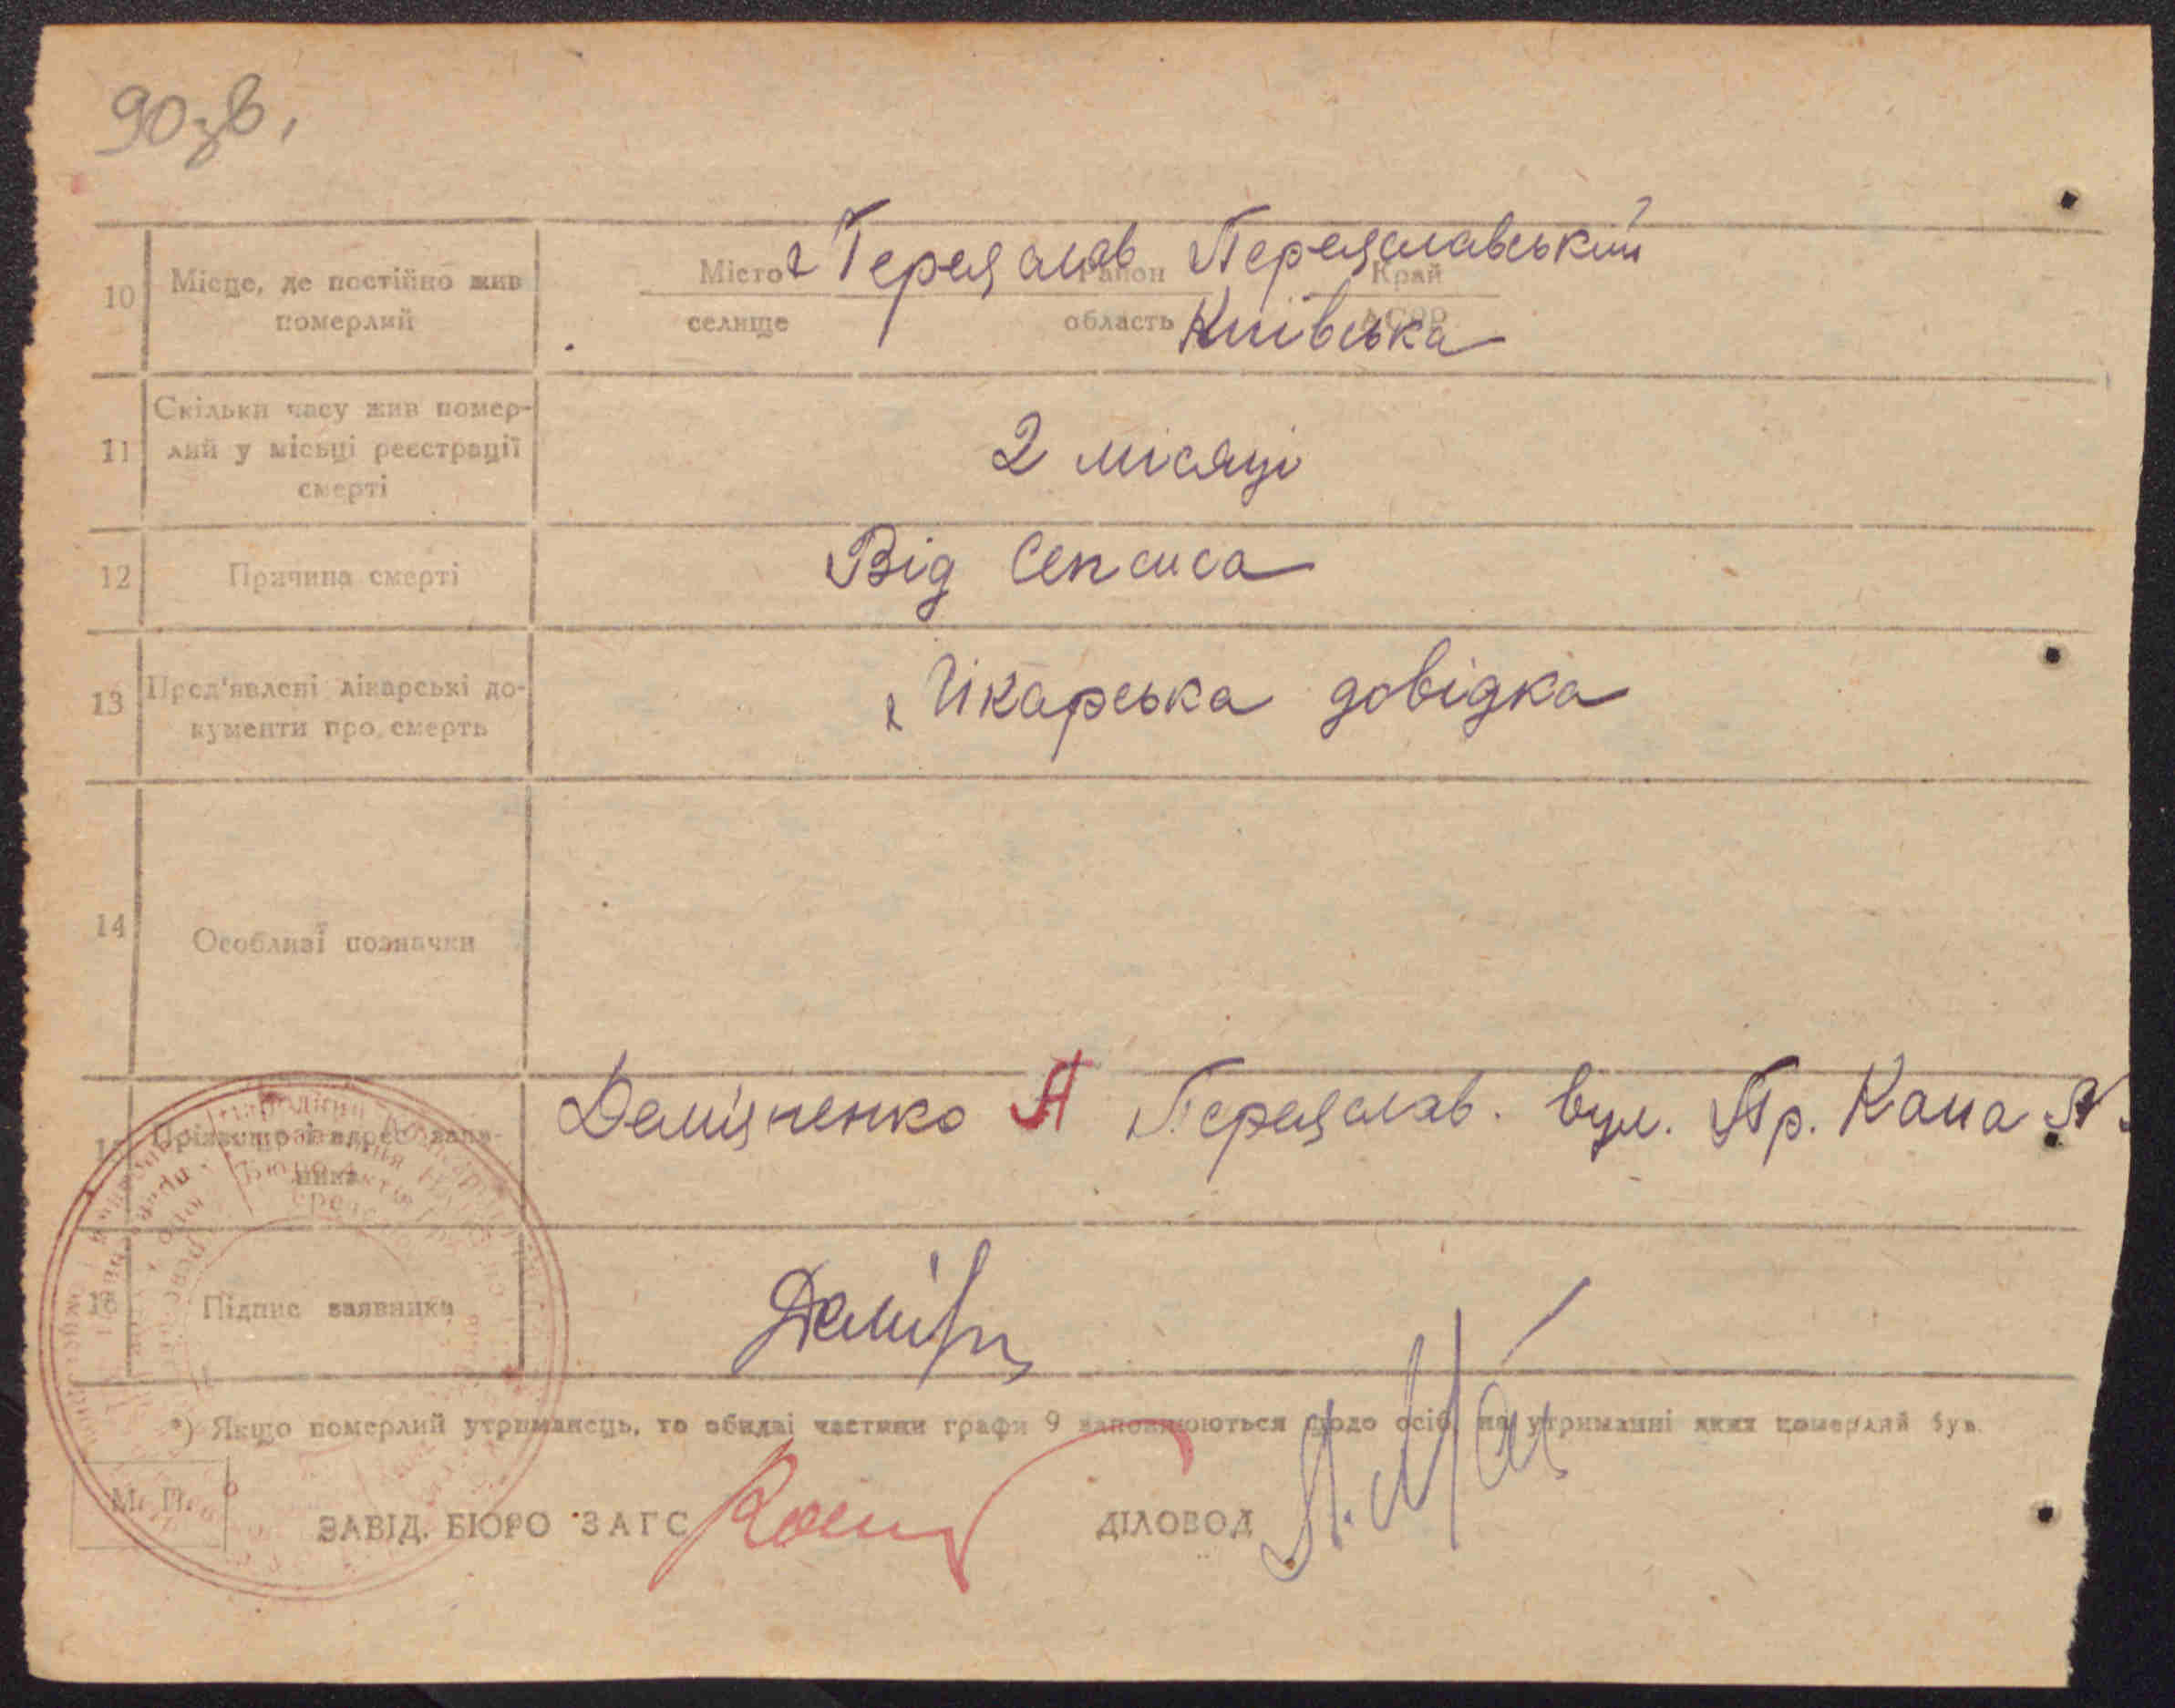 90зв.
10 Місце, де постійно жив померлий
Місто Переяслав Район Переяславський Край
селище область Київська АСРР
11 Скільки часу жив помер-
лий у місьці реєстрації
смерті
2 місяці
12 Причина смерті
Від сепсиса
13 Пред'явлені лікарські до-
кументи про смерть
Лікарська довідка
14 Особливі позначки
Прізвище і адреса заяв-
ника
Дем'яненко А Переяслав. вул. Пр.
16 Підпис заявника
*) Якщо померлий утриманець, то обидві частини графи 9 заповнюються щодо осіб, на утриманні яких померлий був.
М. П.
ЗАВІД. БЮРО ЗАГС ДІЛОВОД